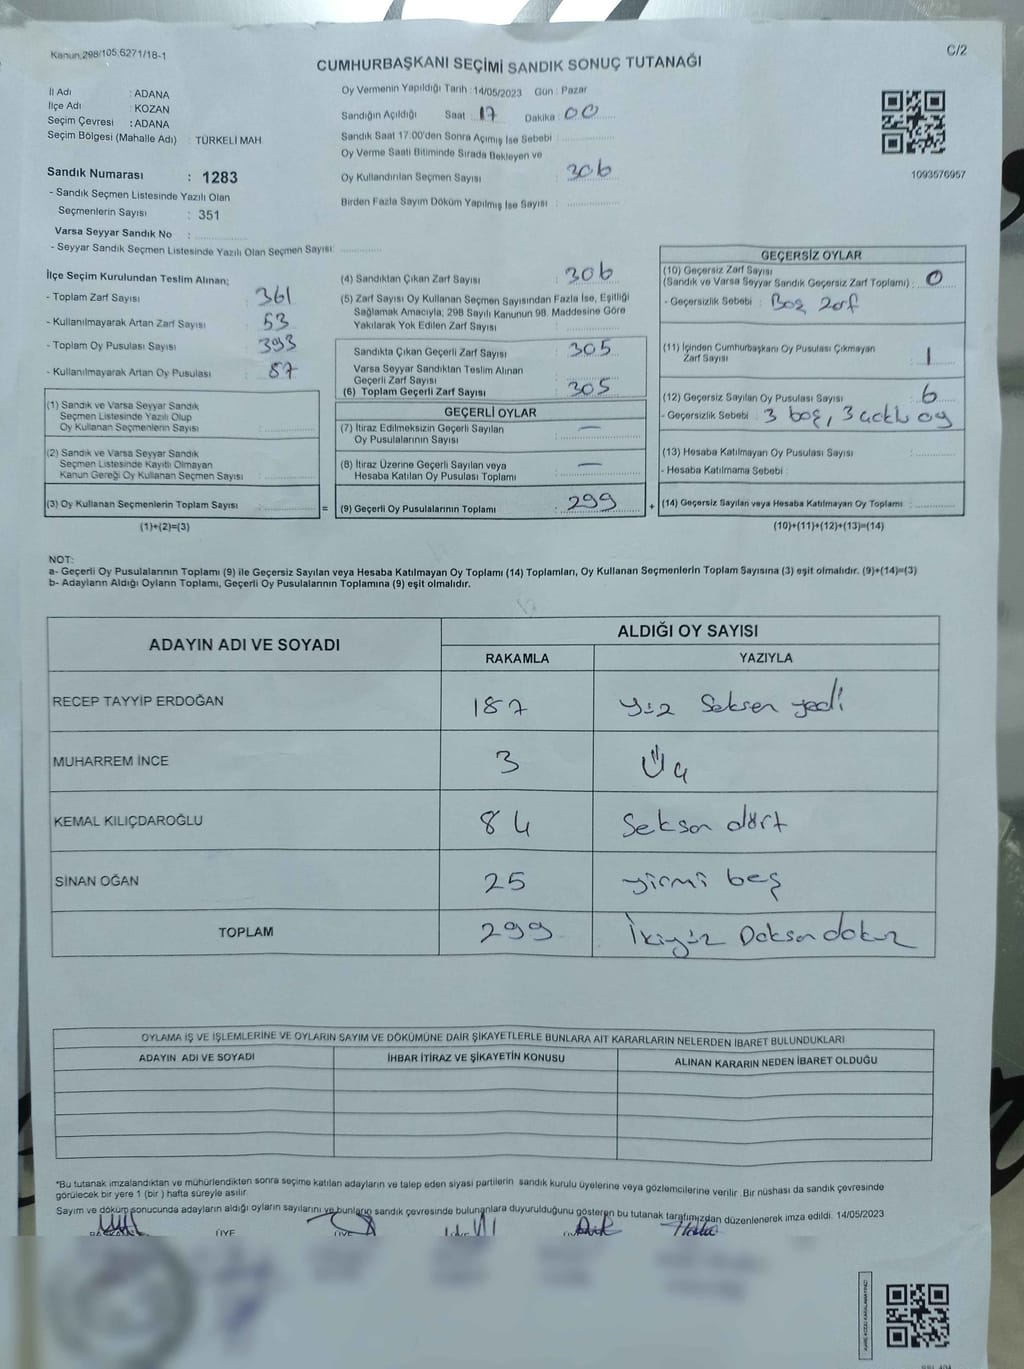 Kanun:298/105,6271/18-1
C/2
CUMHURBAŞKANI SEÇİMİ SANDIK SONUÇ TUTANAĞI
İl Adı : ADANA
İlçe Adı : KOZAN
Seçim Çevresi : ADANA
Seçim Bölgesi (Mahalle Adı) : TÜRKELİ MAH
Oy Vermenin Yapıldığı Tarih : 14/05/2023 Gün : Pazar
Sandığın Açıldığı Saat : 17 Dakika : 00
Sandık Saat 17:00'den Sonra Açımış İse Sebebi :
Oy Verme Saati Bitiminde Sırada Bekleyen ve
Oy Kullandırılan Seçmen Sayısı : 306
Birden Fazla Sayım Döküm Yapılmış İse Sayısı :
1093576957
Sandık Numarası : 1283
- Sandık Seçmen Listesinde Yazılı Olan
Seçmenlerin Sayısı : 351
Varsa Seyyar Sandık No :
- Seyyar Sandık Seçmen Listesinde Yazılı Olan Seçmen Sayısı:
İlçe Seçim Kurulundan Teslim Alınan;
- Toplam Zarf Sayısı : 361
- Kullanılmayarak Artan Zarf Sayısı : 53
- Toplam Oy Pusulası Sayısı : 393
- Kullanılmayarak Artan Oy Pusulası : 87
(1) Sandık ve Varsa Seyyar Sandık
Seçmen Listesinde Yazılı Olup
Oy Kullanan Seçmenlerin Sayısı :
(2) Sandık ve Varsa Seyyar Sandık
Seçmen Listesinde Kayıtlı Olmayan
Kanun Gereği Oy Kullanan Seçmen Sayısı :
(3) Oy Kullanan Seçmenlerin Toplam Sayısı :
(1)+(2)=(3)
(4) Sandıktan Çıkan Zarf Sayısı : 306
(5) Zarf Sayısı Oy Kullanan Seçmen Sayısından Fazla İse, Eşitliği
Sağlamak Amacıyla; 298 Sayılı Kanunun 98. Maddesine Göre
Yakılarak Yok Edilen Zarf Sayısı :
Sandıkta Çıkan Geçerli Zarf Sayısı : 305
Varsa Seyyar Sandıktan Teslim Alınan
Geçerli Zarf Sayısı :
(6) Toplam Geçerli Zarf Sayısı : 305
GEÇERLİ OYLAR
(7) İtiraz Edilmeksizin Geçerli Sayılan
Oy Pusulalarının Sayısı : —
(8) İtiraz Üzerine Geçerli Sayılan veya
Hesaba Katılan Oy Pusulası Toplamı : —
= (9) Geçerli Oy Pusulalarının Toplamı : 299 +
GEÇERSİZ OYLAR
(10) Geçersiz Zarf Sayısı
(Sandık ve Varsa Seyyar Sandık Geçersiz Zarf Toplamı) : 0
- Geçersizlik Sebebi : Boş Zarf
(11) İçinden Cumhurbaşkanı Oy Pusulası Çıkmayan
Zarf Sayısı : 1
(12) Geçersiz Sayılan Oy Pusulası Sayısı : 6
- Geçersizlik Sebebi : 3 boş, 3 oy
(13) Hesaba Katılmayan Oy Pusulası Sayısı :
- Hesaba Katılmama Sebebi :
(14) Geçersiz Sayılan veya Hesaba Katılmayan Oy Toplamı :
(10)+(11)+(12)+(13)=(14)
NOT:
a- Geçerli Oy Pusulalarının Toplamı (9) ile Geçersiz Sayılan veya Hesaba Katılmayan Oy Toplamı (14) Toplamları, Oy Kullanan Seçmenlerin Toplam Sayısına (3) eşit olmalıdır. (9)+(14)=(3)
b- Adayların Aldığı Oyların Toplamı, Geçerli Oy Pusulalarının Toplamına (9) eşit olmalıdır.
ADAYIN ADI VE SOYADI
ALDIĞI OY SAYISI
RAKAMLA YAZIYLA
RECEP TAYYİP ERDOĞAN 187 Yüz Seksen yedi
MUHARREM İNCE 3 Üç
KEMAL KILIÇDAROĞLU 84 Seksen dört
SİNAN OĞAN 25 yirmi beş
TOPLAM 299 İkiyüz Doksan dokuz
OYLAMA İŞ VE İŞLEMLERİNE VE OYLARIN SAYIM VE DÖKÜMÜNE DAİR ŞİKAYETLERLE BUNLARA AİT KARARLARIN NELERDEN İBARET BULUNDUKLARI
ADAYIN ADI VE SOYADI İHBAR İTİRAZ VE ŞİKAYETİN KONUSU ALINAN KARARIN NEDEN İBARET OLDUĞU
*Bu tutanak imzalandıktan ve mühürlendikten sonra seçime katılan adayların ve talep eden siyasi partilerin sandık kurulu üyelerine veya gözlemcilerine verilir. Bir nüshası da sandık çevresinde
görülecek bir yere 1 (bir) hafta süreyle asılır.
Sayım ve döküm sonucunda adayların aldığı oyların sayılarını ve bunların sandık çevresinde bulunanlara duyurulduğunu gösteren bu tutanak tarafımızdan düzenlenerek imza edildi. 14/05/2023
ÜYE